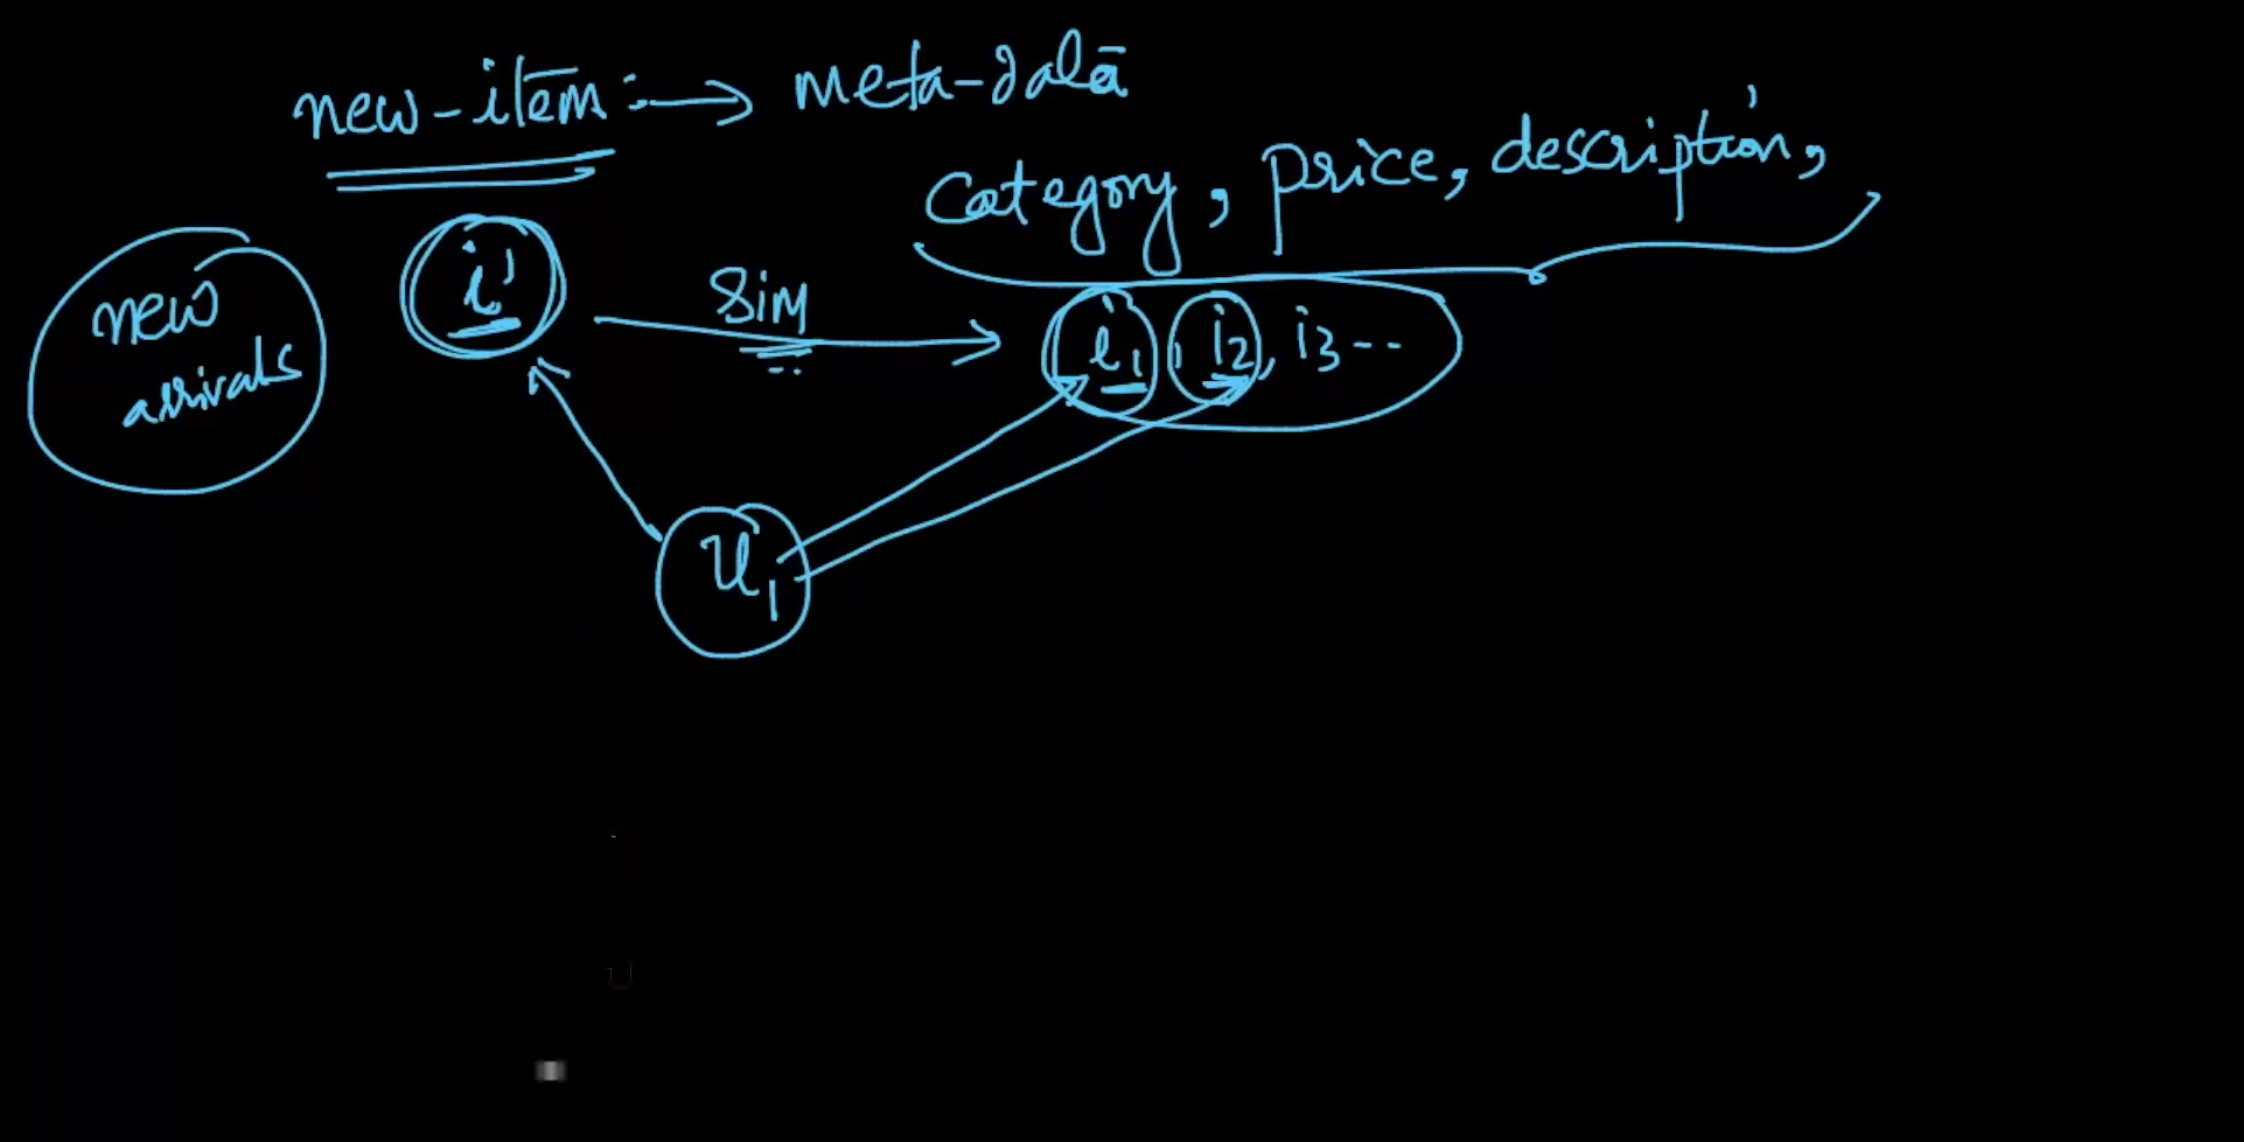 new-item :→ meta-data
category, price, description,
new
arrivals
i'
Sim
i1, i2, i3--
U1